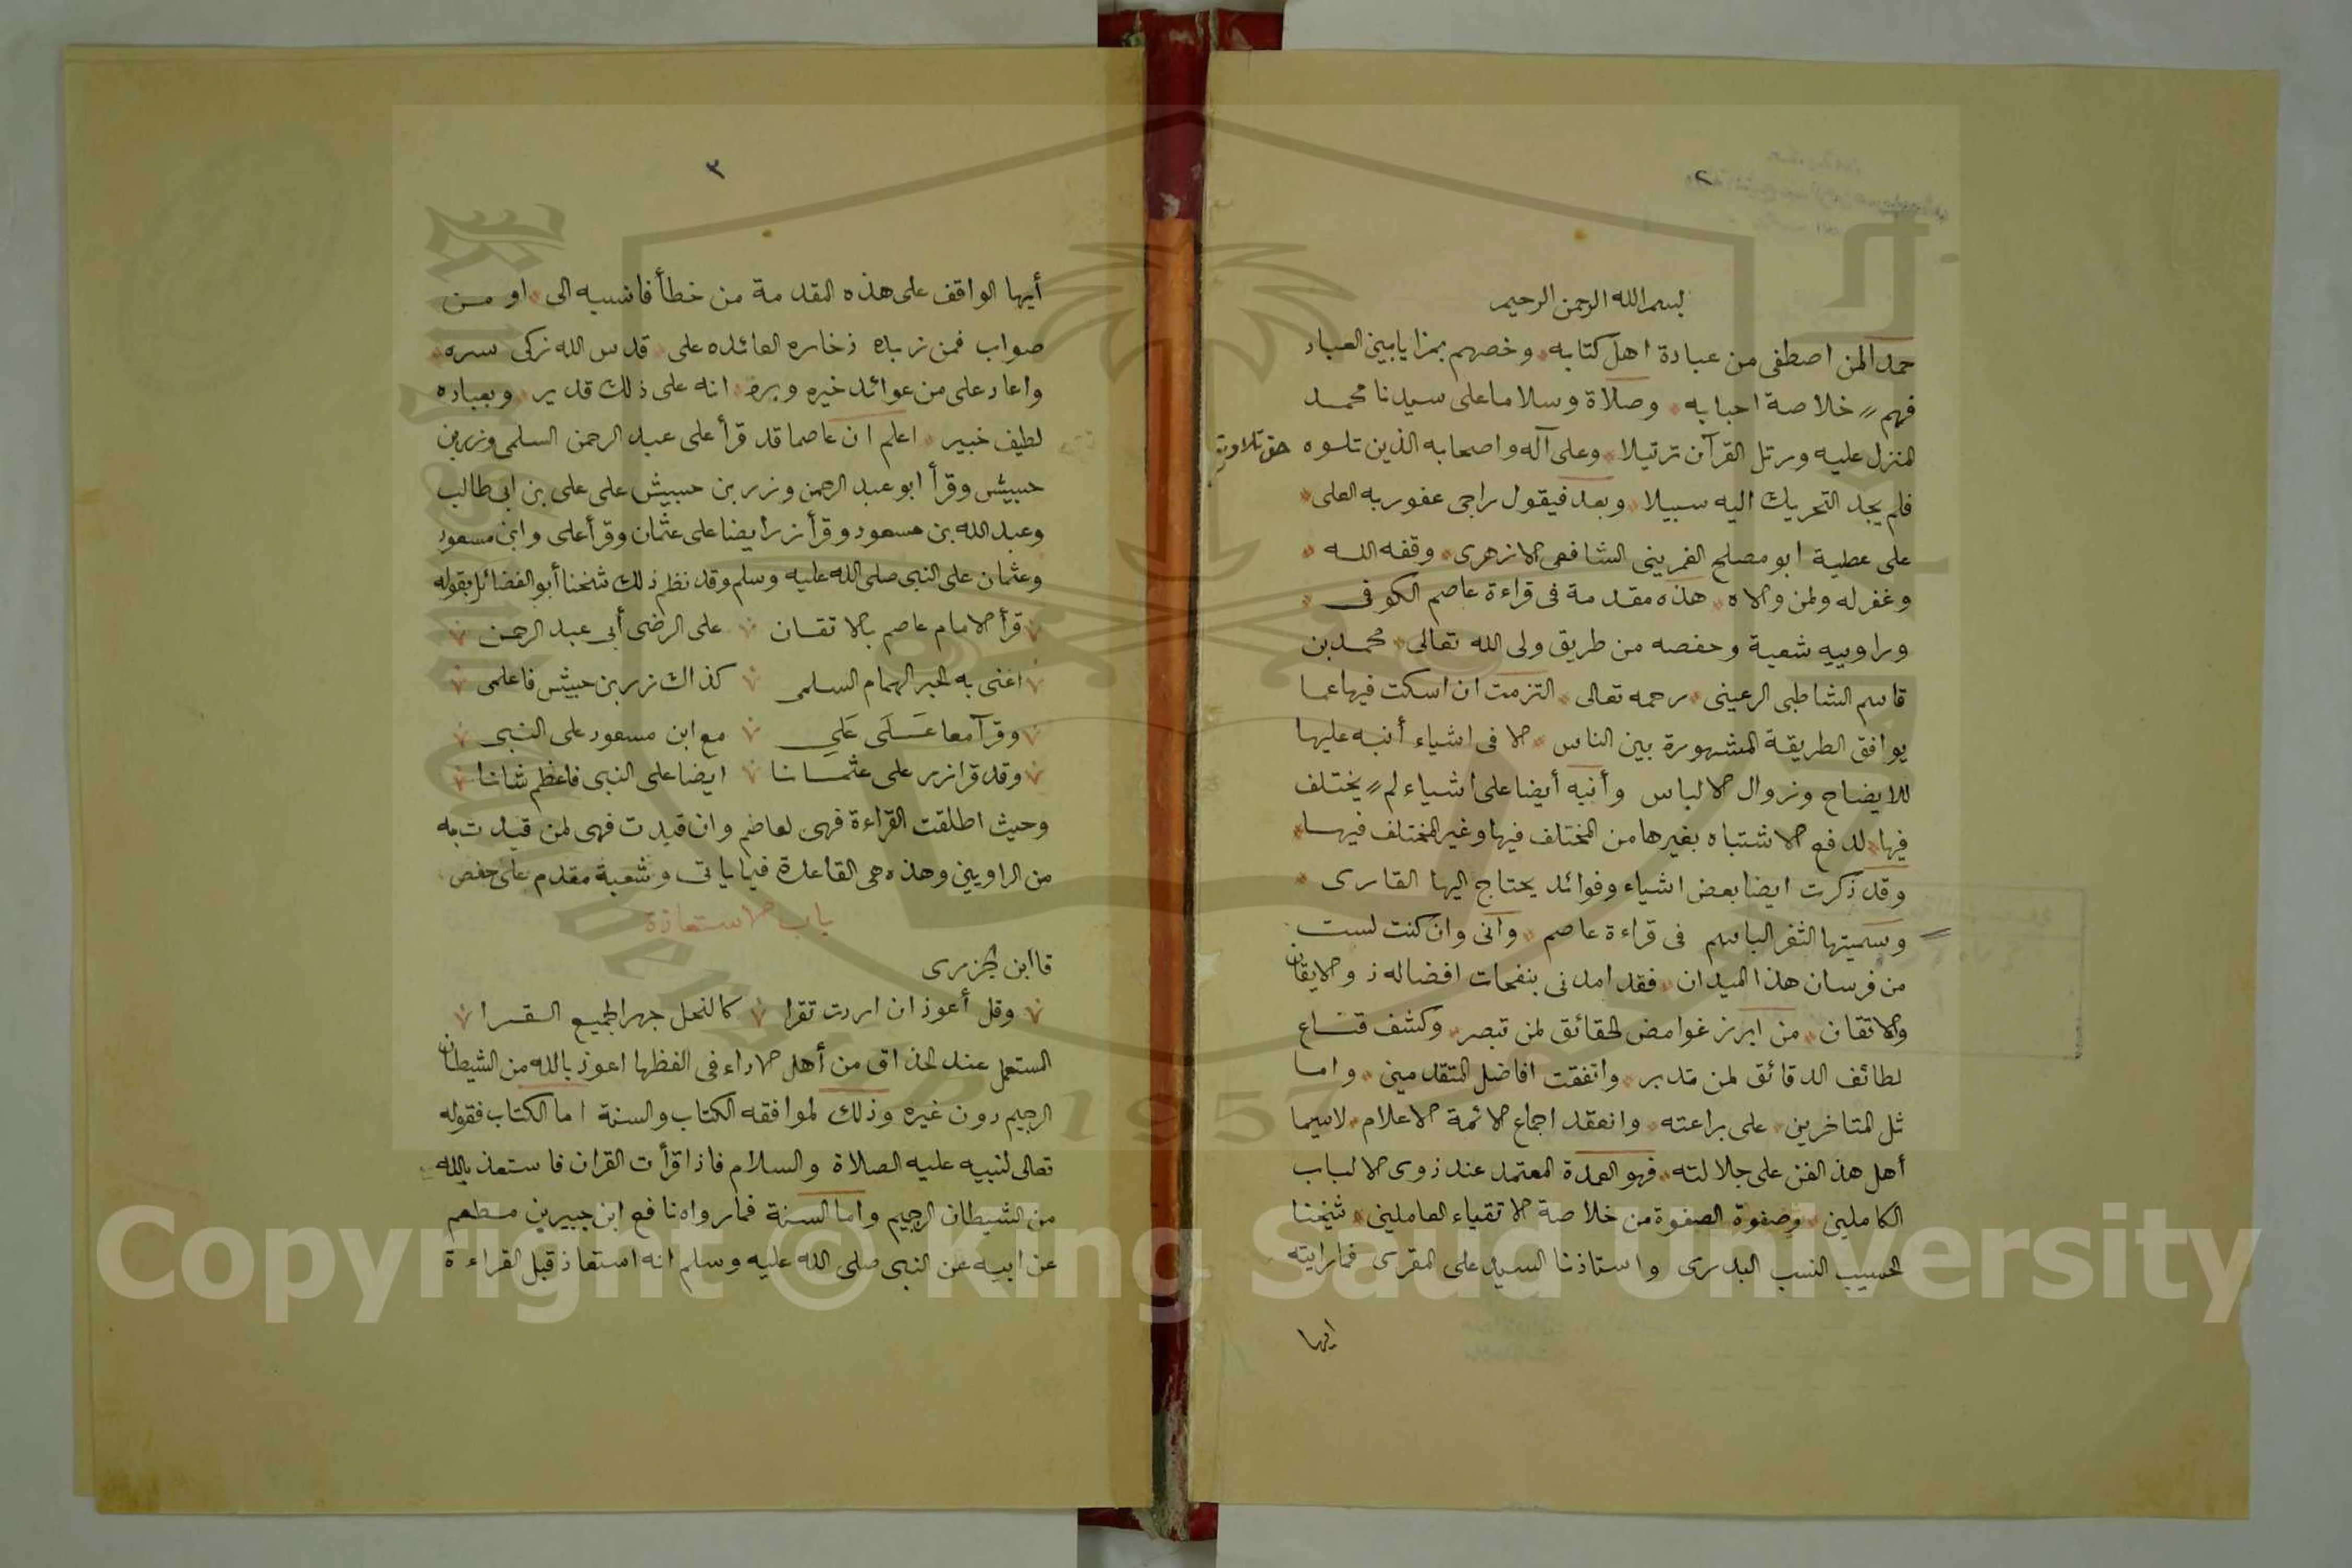 ٢
بسم الله الرحمن الرحيم
حمدا لمن اصطفى من عباده اهل كتابه وخصهم بمزايا بين العباد
فهم خلاصة احبابه وصلاة وسلاما على سيدنا محمد
المنزل عليه ورتل القرآن ترتيلا وعلى آله واصحابه الذين تلوه حق تلاوته
فلم يجد التحريك اليه سبيلا وبعد فيقول راجى عفو ربه العلى
على عطية ابو مصلح الغمرينى الشافعى الازهرى وفقه الله
وغفر له ولمن والاه هذه مقدمة فى قراءة عاصم الكوفى
وراوييه شعبة وحفصه من طريق ولى الله تعالى محمد بن
قاسم الشاطبى الرعينى رحمه تعالى التزمت ان اسكت فيها عما
يوافق الطريقة المشهورة بين الناس الا فى اشياء أنبه عليها
للايضاح وزوال الالباس وأنبه أيضا على اشياء لم يختلف
فيها لدفع الاشتباه بغيرها من المختلف فيها وغير المختلف فيها
وقد ذكرت ايضا بعض اشياء وفوائد يحتاج اليها القارى
وسميتها الثغر الباسم فى قراءة عاصم وانى وان كنت لست
من فرسان هذا الميدان فقد امدنى بنفحات افضاله ذو الايقان
والاتقان من ابرز غوامض الحقائق لمن تبصر وكشف قناع
لطائف الدقائق لمن تدبر واتفقت افاضل المتقدمين واما
ثل المتاخرين على براعته وانعقد اجماع الائمة الاعلام لاسيما
أهل هذ الفن على جلالته فهو العمدة المعتمد عند ذوى الالباب
الكاملين وصفوة الصفوة من خلاصة الاتقياء العاملين شيخنا
الحسيب النسب البدرى واستاذنا السيد على المقرى فما رايته
ايها
٣
أيها الواقف على هذه المقدمة من خطأ فانسبه الى او من
صواب فمن زبده ذخاره العائده على قدس الله زكى سره
واعاد على من عوائد خيره وبره انه على ذلك قدير وبعباده
لطيف خبير اعلم ان عاصما قد قرأ على عبد الرحمن السلمى وزر بن
حبيش وقرأ ابو عبد الرحمن وزر بن حبيش على على بن ابى طالب
وعبد الله بن مسعود وقرأ زر أيضا على عثمان وقرأ على وابن مسعود
وعثمان على النبى صلى الله عليه وسلم وقد نظم ذلك شيخنا أبو الفضائل بقوله
قرأ الامام عاصم بالاتقان على الرضى أبى عبد الرحمن
اعنى به الحبر الهمام السلمى كذاك زر بن حبيش فاعلمى
وقرآ معا عَلَى عَلىِ مع ابن مسعود على النبى
وقد قرا زر على عثمانا ايضا على النبى فاعظم شانا
وحيث اطلقت القراءة فهى لعاصم وان قيدت فهى لمن قيدت به
من الراويين وهذه هى القاعدة فيما ياتى وشعبة مقدم على حفص
باب الاستعاذة
قا ابن الجزرى
وقل أعوذ ان اردت تقرا كالنحل جهرا لجميع القرا
المستعمل عند الحذاق من أهل الاداء فى الفظها اعوذ بالله من الشيطان
الرجيم دون غيره وذلك لموافقه الكتاب والسنة اما الكتاب فقوله
تعالى لنبيه عليه الصلاة والسلام فاذا قرأت القران فاستعذ بالله
من الشيطان الرجيم واما السنة فما رواه نافع ابن جبير بن مطعم
عن ابيه عن النبى صلى الله عليه وسلم انه استعاذ قبل القراءة
Copyright © King Saud University
1957